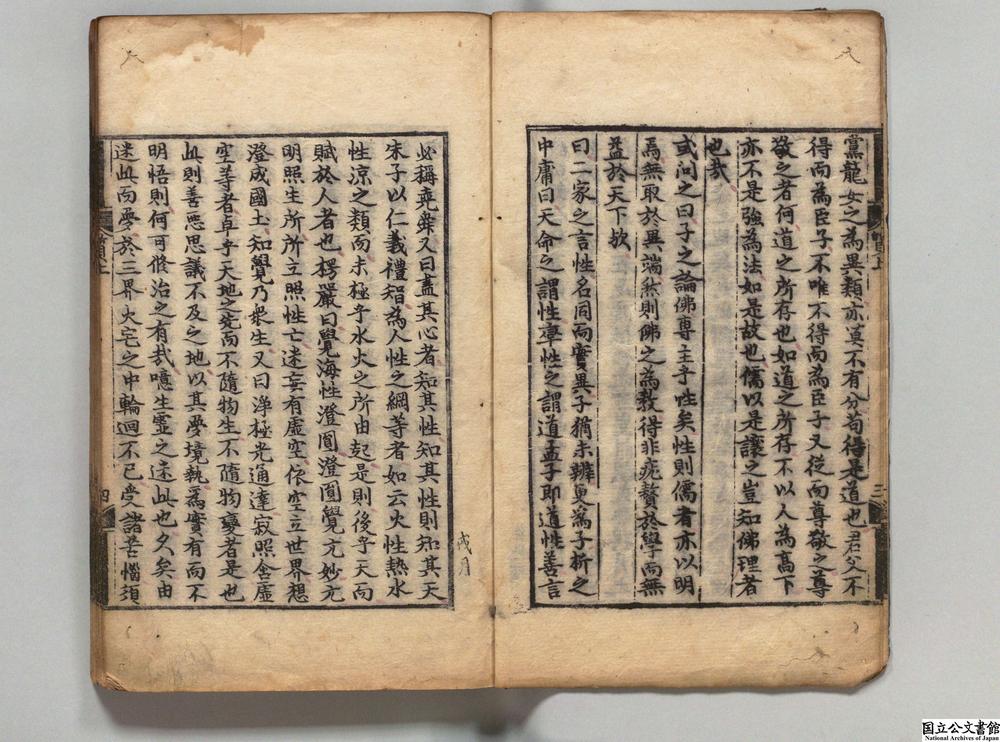 黨龍女之為異類亦莫不有分苟得是道也君父不
得而為臣子不唯不得而為臣子又從而尊敬之尊
敬之者何道之所存也如道之所存不以人為高下
亦不是強為法如是故也儒以是讓之豈知佛理者
也哉
或问之曰子之論佛専主乎性矣性則儒者亦以明
焉無取於異端然則佛之為教得非疣贅於學而無
益於天下欤
曰二家之言性名同而實異子猶未辨更為子析之
中庸曰天命之謂性率性之謂道孟子即道性善言
三
必稱堯舜又曰盡其心者知其性知其性則知其天
朱子以仁義禮智為人性之綱等者如云火性熱水
性涼之類而未極乎水火之所由起是則後乎天而
賦於人者也楞嚴曰覺海性澄圓澄圓覺元妙元
明照生所所立照性亡迷妄有虛空依空立世界想
澄成國土知覺乃衆生又曰淨極光通達寂照含虛
空等者卓乎天地之先而不隨物生不隨物變者是也
此則善悪思議不及之地以其夢境執為實有而不
明悟則何可修治之有哉噫生靈之迷此也久矣由
迷此而夢於三界火宅之中輪迴不已受諸苦惱須
四
戌月
国立公文書館
National Archives of Japan